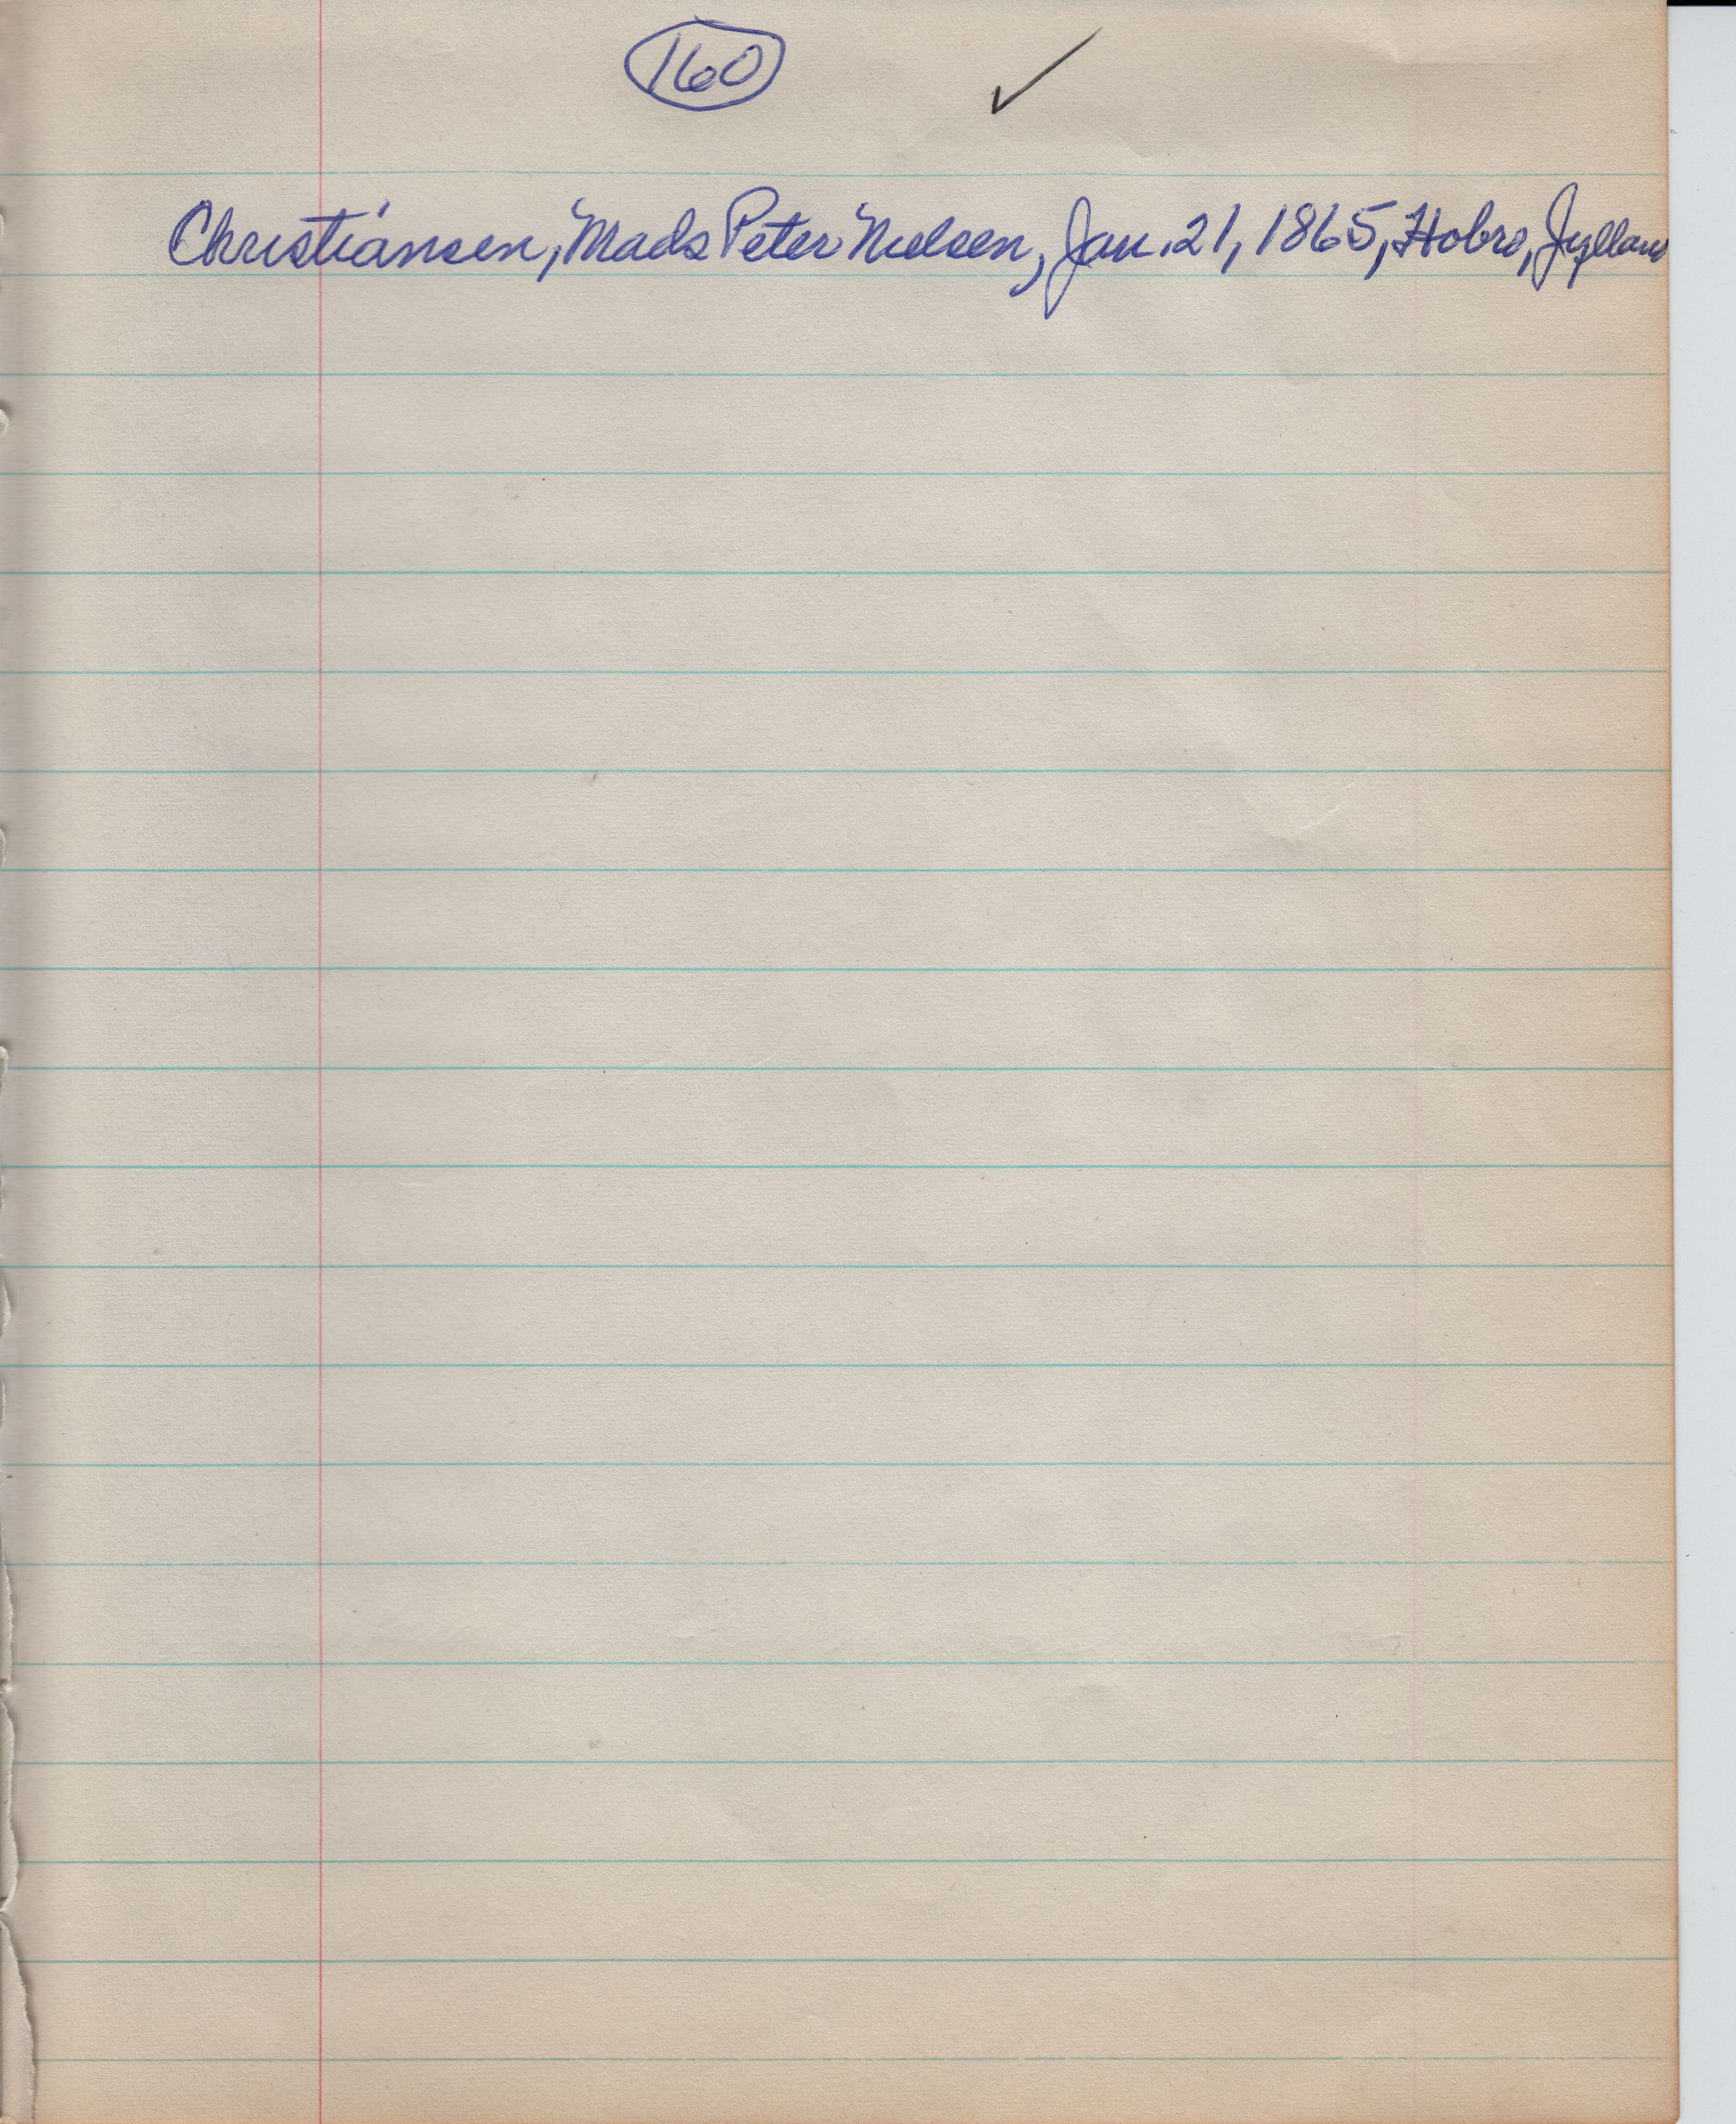 160 ✓
Christiansen, Mads Peter Nielsen, Jan. 21, 1865, Hobro, Jylland